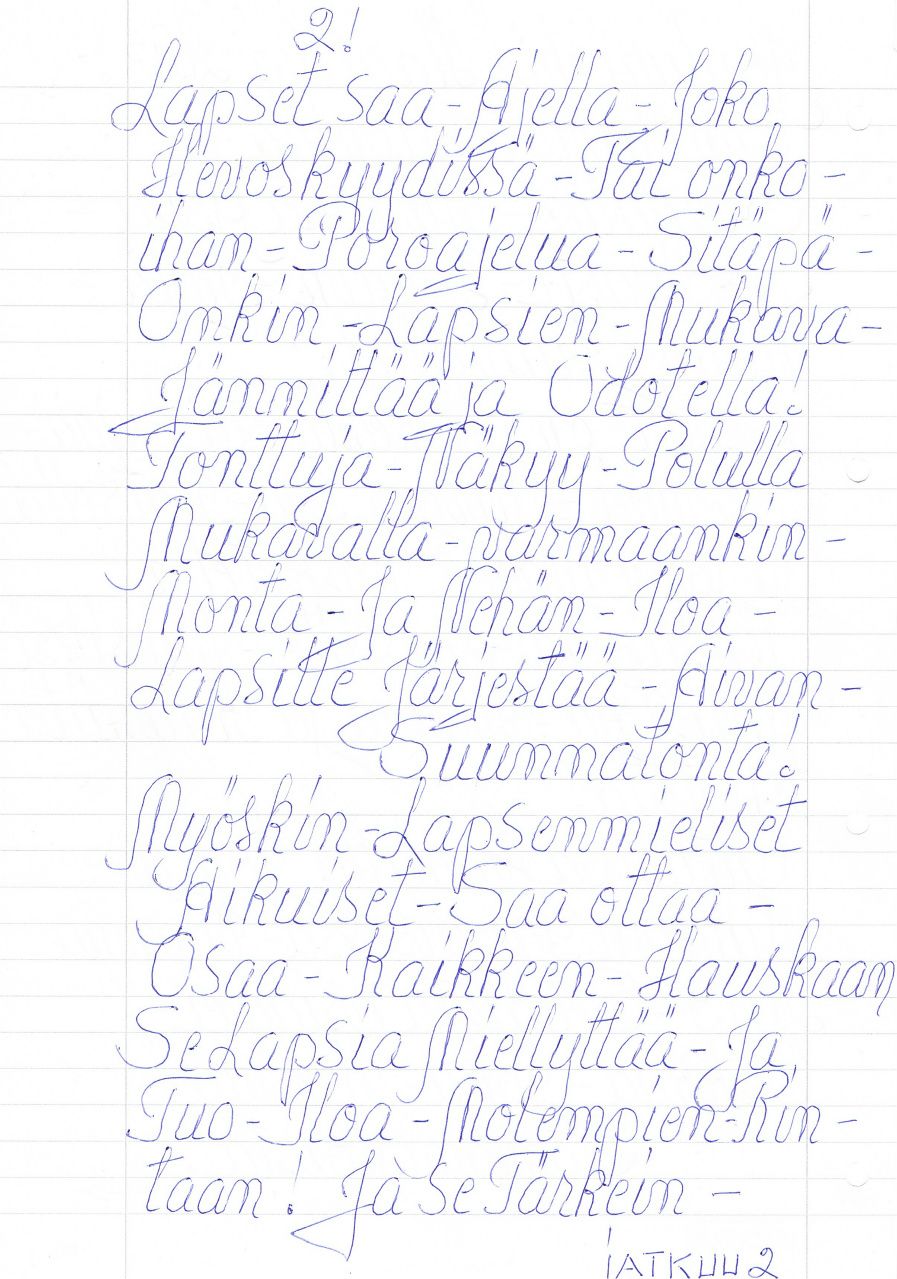 2!
Lapset saa - Ajella - Joko
Hevoskyydissä - Tai onko -
ihan - Poroajelua - Sitäpä -
Onkin - Lapsien - Mukava -
Jännittää ja Odotella!
Tonttuja - Näkyy - Polulla
Mukavalla - varmaankin -
Monta - Ja Nehän - Iloa -
Lapsille Järjestää - Aivan -
Suunnatonta!
Myöskin - Lapsenmieliset
Aikuiset - Saa ottaa -
Osaa - Kaikkeen - Hauskaan
Se Lapsia Miellyttää - Ja
Tuo - Iloa - Molempien - Rin -
taan! Ja Se Tärkein -
JATKUU 2